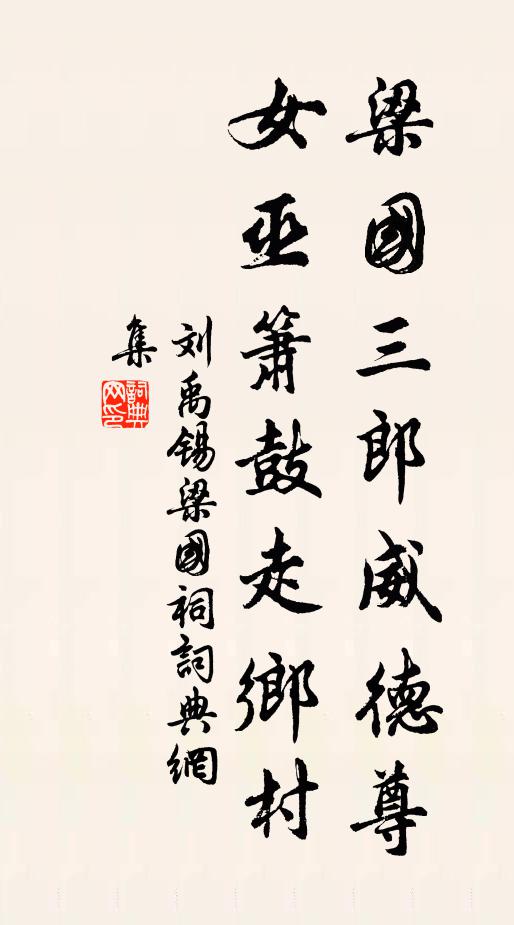 梁國三郎威德尊
女巫簫鼓走鄉村
刘禹锡梁國祠詞典網
集
詞典網印